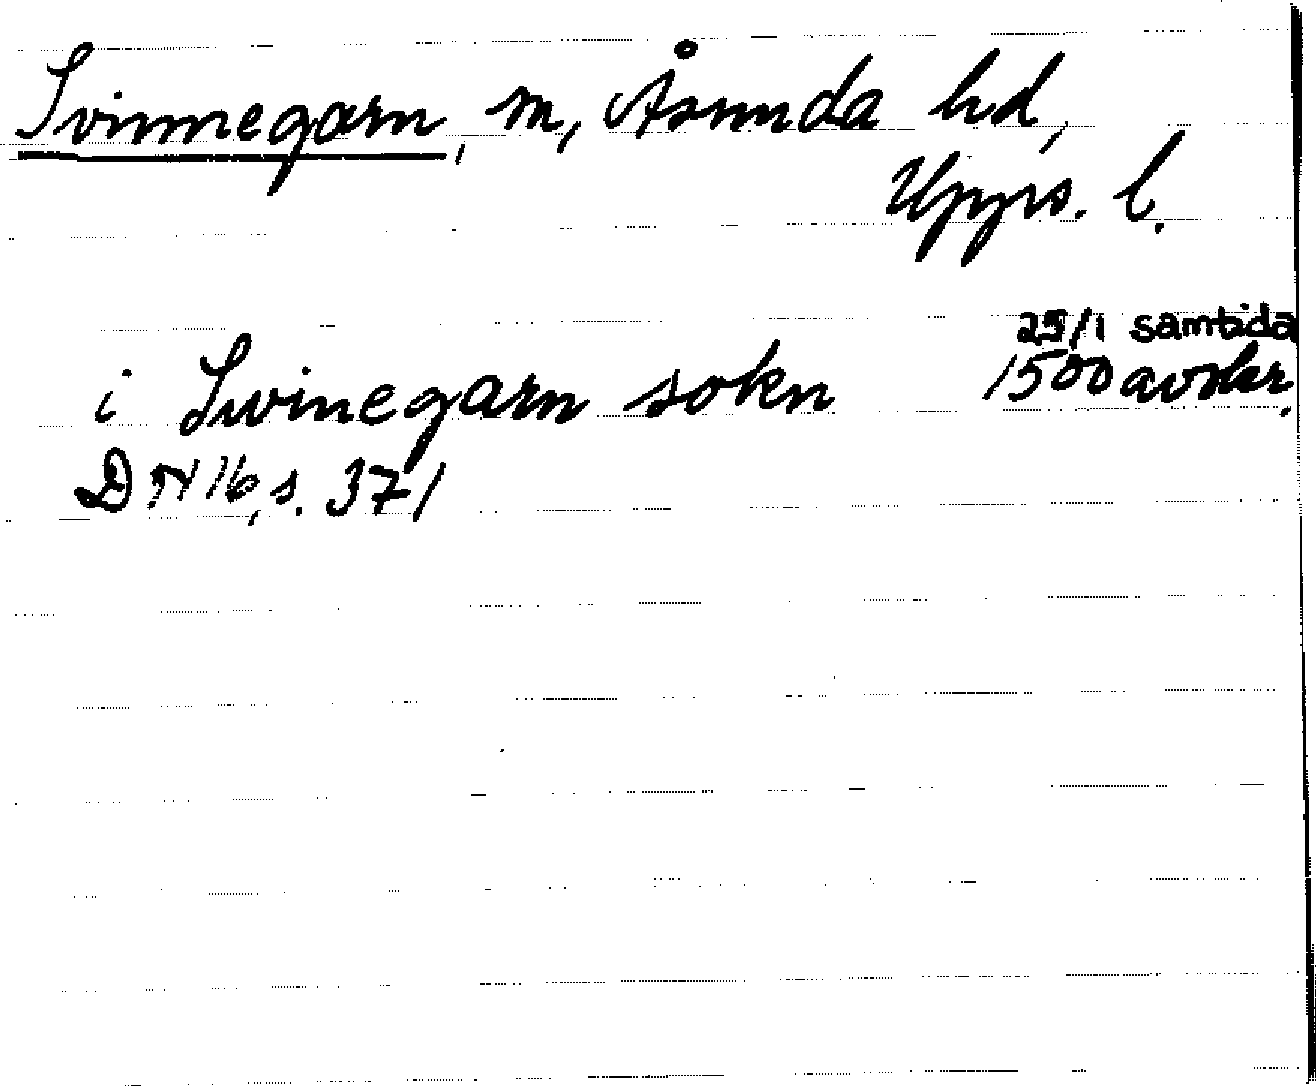 Svinnegarn, sn, Åsunda hd,
Upps. l.
25/1 samtida
i Swinegarn sokn 1500 avskr.
DN 16, s. 371